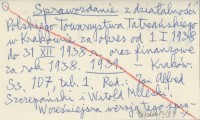 Sprawozdanie z działalności
Polskiego Towarzystwa Tatrzańskiego
w Krakowie za okres od 1 I 1938
do 31 XII 1938 r. oraz finansowe
za rok 1938. 1939. Kraków:
S. 107, tabl. 1. Red.: Jan Alfred
Szczepański i Witold Milewski.
Wcześniejsza wersja tego